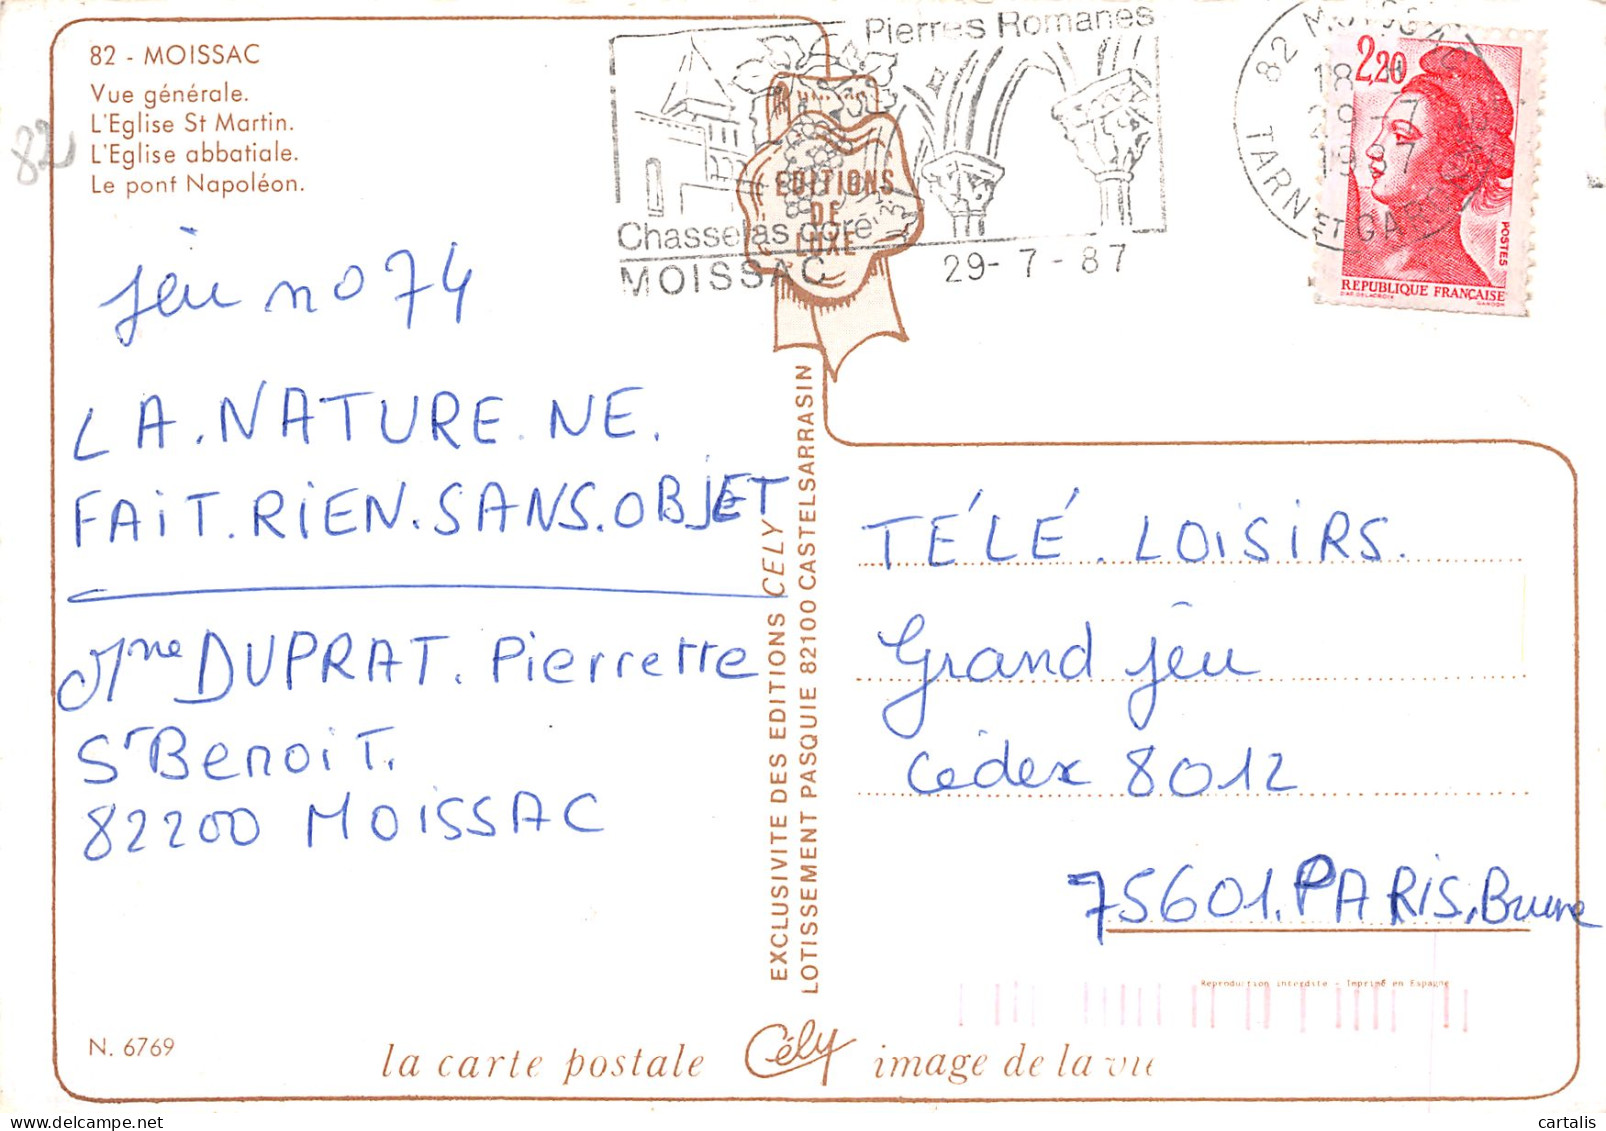 82 - MOISSAC
Vue générale.
L'Eglise St Martin.
L'Eglise abbatiale.
Le pont Napoléon.
82
Pierres Romanes
Chasselas doré
MOISSAC
29-7-87
EDITIONS
DE
LUXE
82 MOISSAC
18 H
29-7
1987
TARN ET GAR
2,20
POSTES
REPUBLIQUE FRANÇAISE
D'AP. DELACROIX
GANDON
jeu no 74
LA.NATURE.NE.
FAIT.RIEN.SANS.OBJET
Mme DUPRAT. Pierrette
St Benoit.
82200 MOISSAC
EXCLUSIVITE DES EDITIONS CELY
LOTISSEMENT PASQUIE 82100 CASTELSARRASIN
TÉLÉ.LOISIRS.
Grand jeu
Cédex 8012
75601.PARIS.Brune
Reproduction interdite - Imprimé en Espagne
N. 6769
la carte postale Cély image de la vie
cartalis